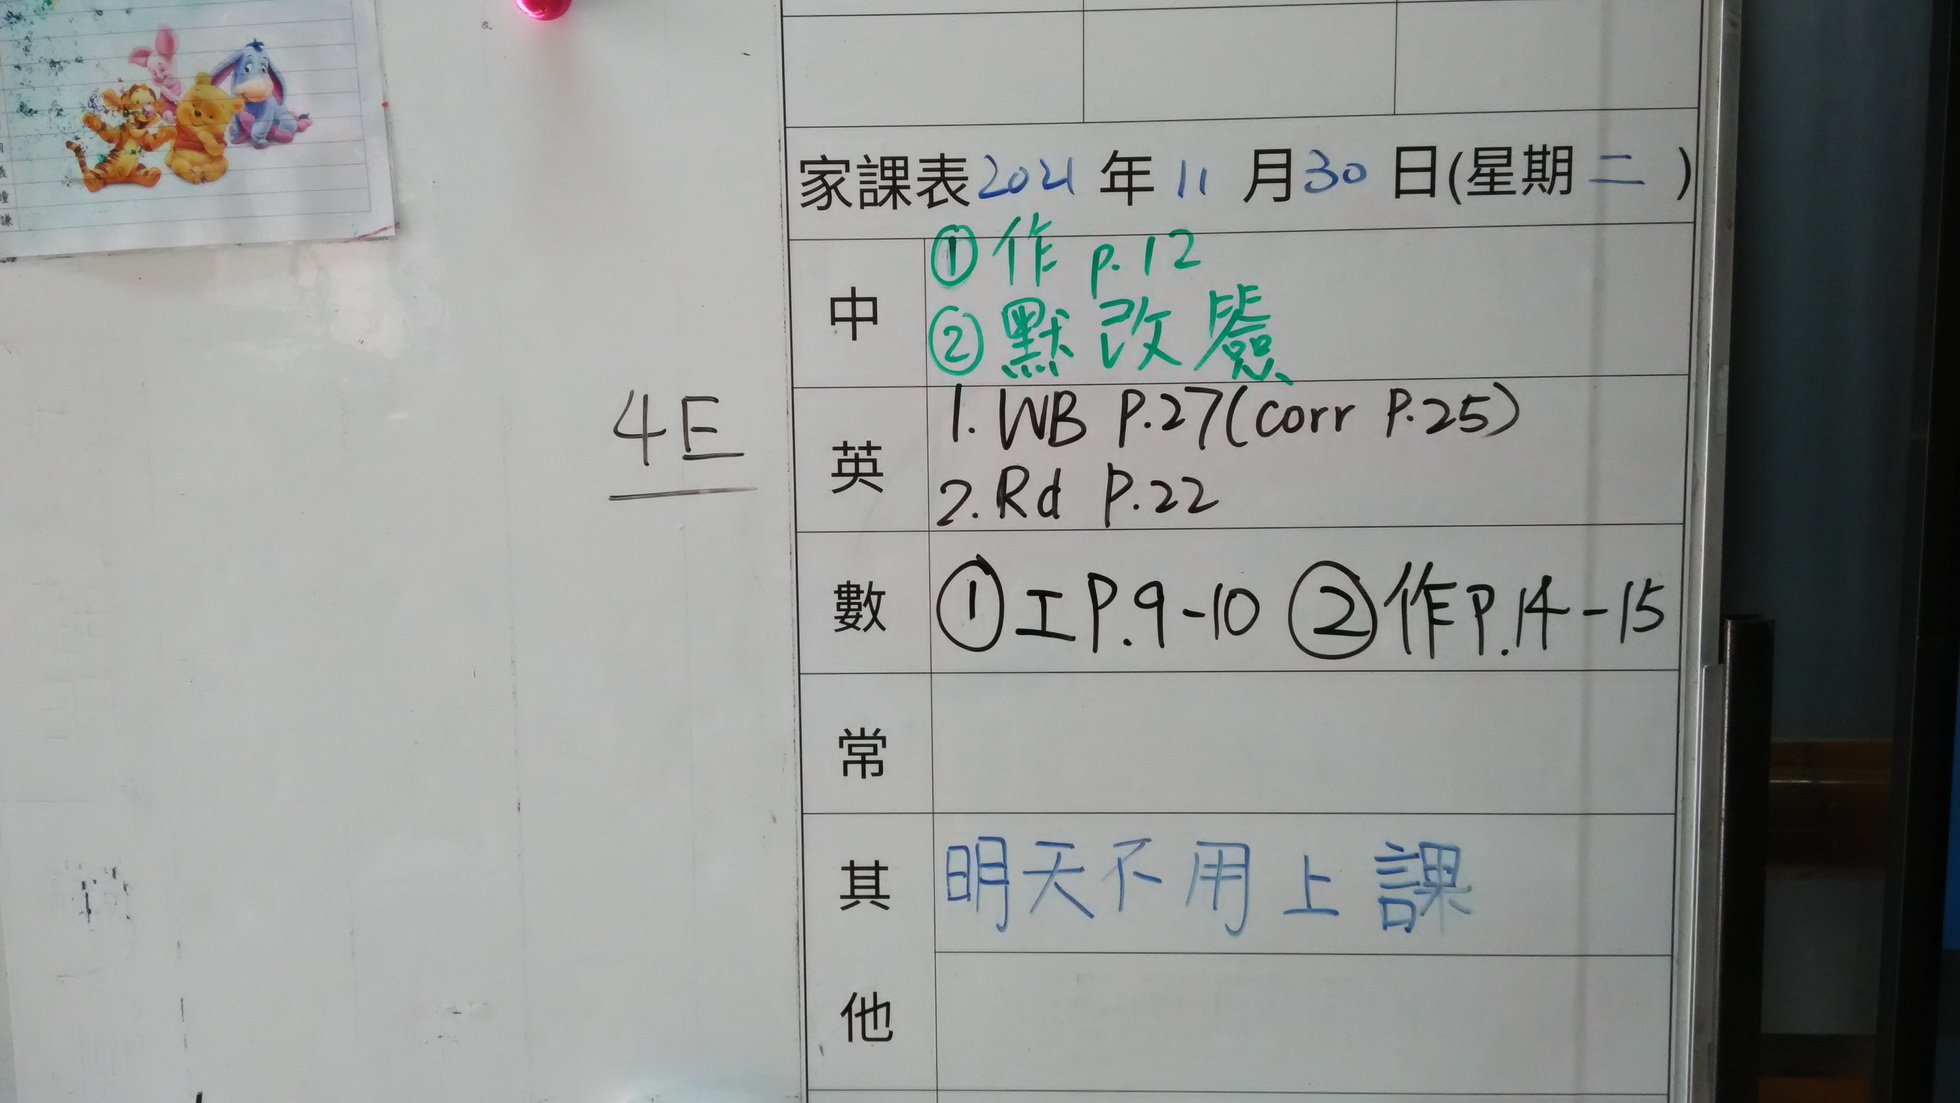 家課表 2021 年 11 月 30 日(星期 二 )
中
① 作 p.12
② 默 改 簽
4E
英
1. WB P.27(corr P.25)
2. Rd P.22
數
① 工 P.9-10 ② 作 P.14-15
常
其他
明天不用上課